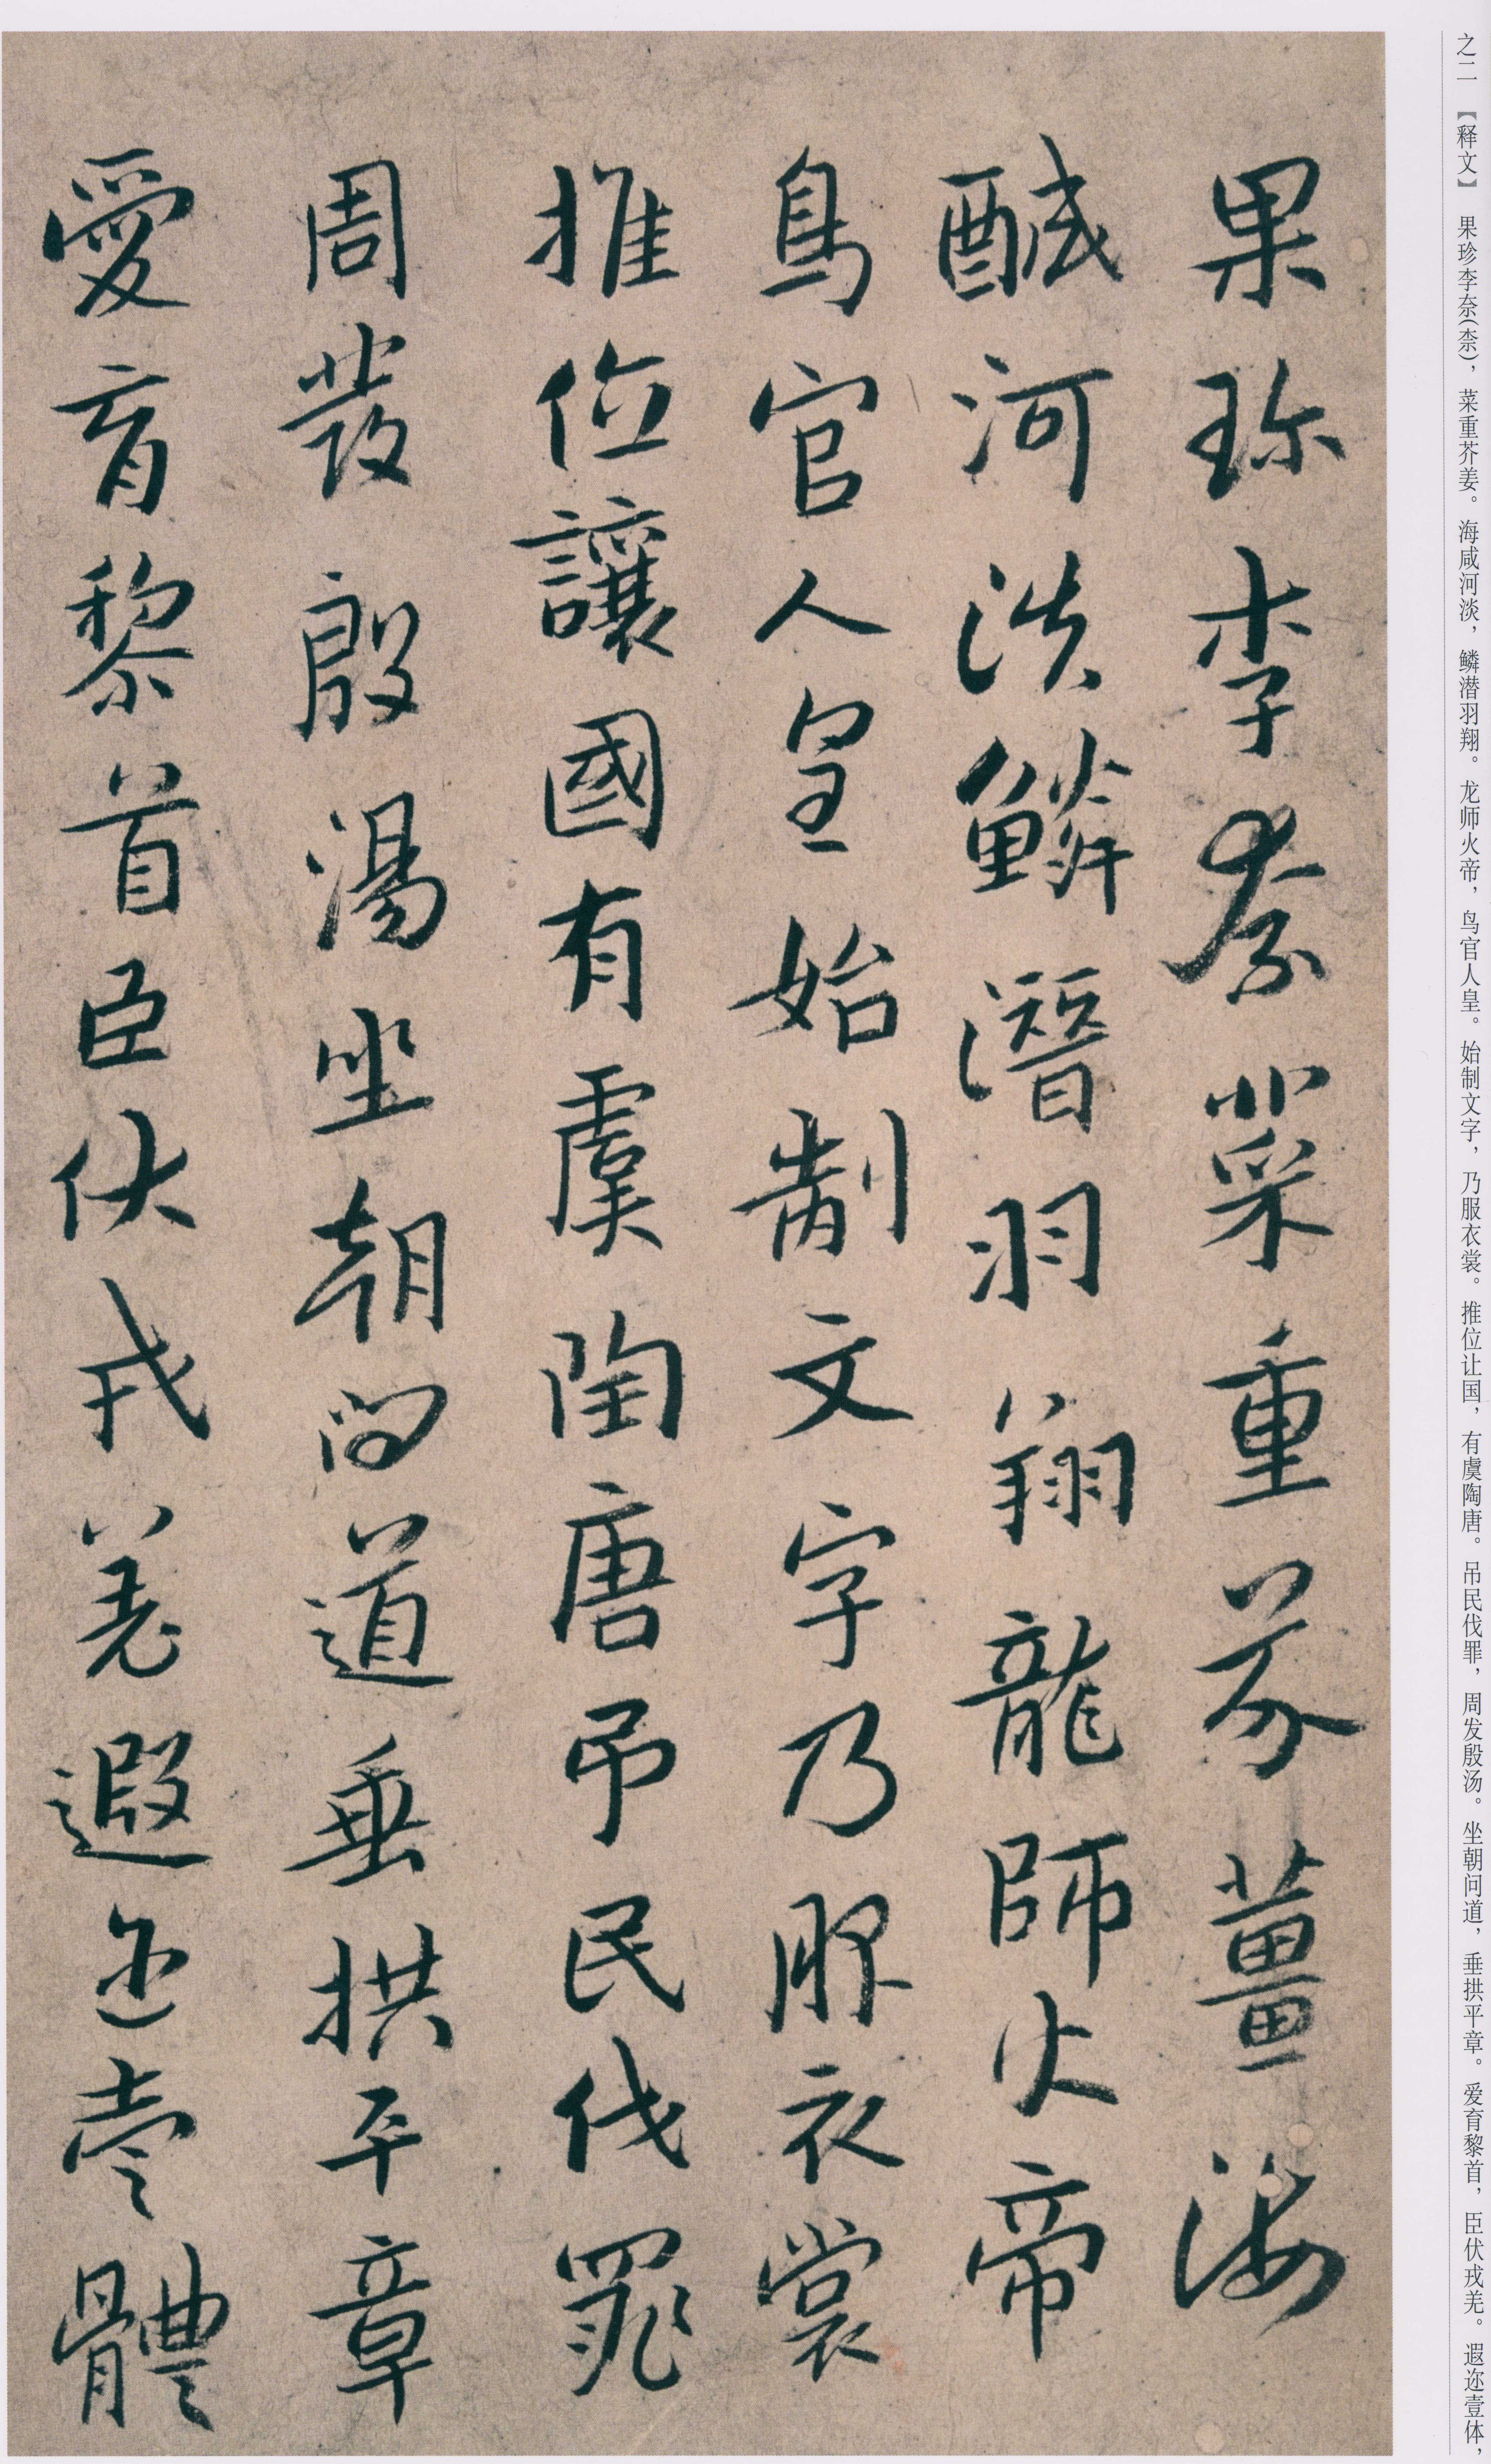 之二 【释文】 果珍李奈(柰)，菜重芥姜。海咸河淡，鳞潜羽翔。龙师火帝，鸟官人皇。始制文字，乃服衣裳。推位让国，有虞陶唐。吊民伐罪，周发殷汤。坐朝问道，垂拱平章。爱育黎首，臣伏戎羌。遐迩壹体，
果珎李柰菜重芥薑海
醎河淡鱗潛羽翔龍師火帝
鳥官人皇始制文字乃服衣裳
推位讓國有虞陶唐吊民伐罪
周發殷湯坐朝問道垂拱平章
愛育黎首臣伏戎羌遐迩壹體